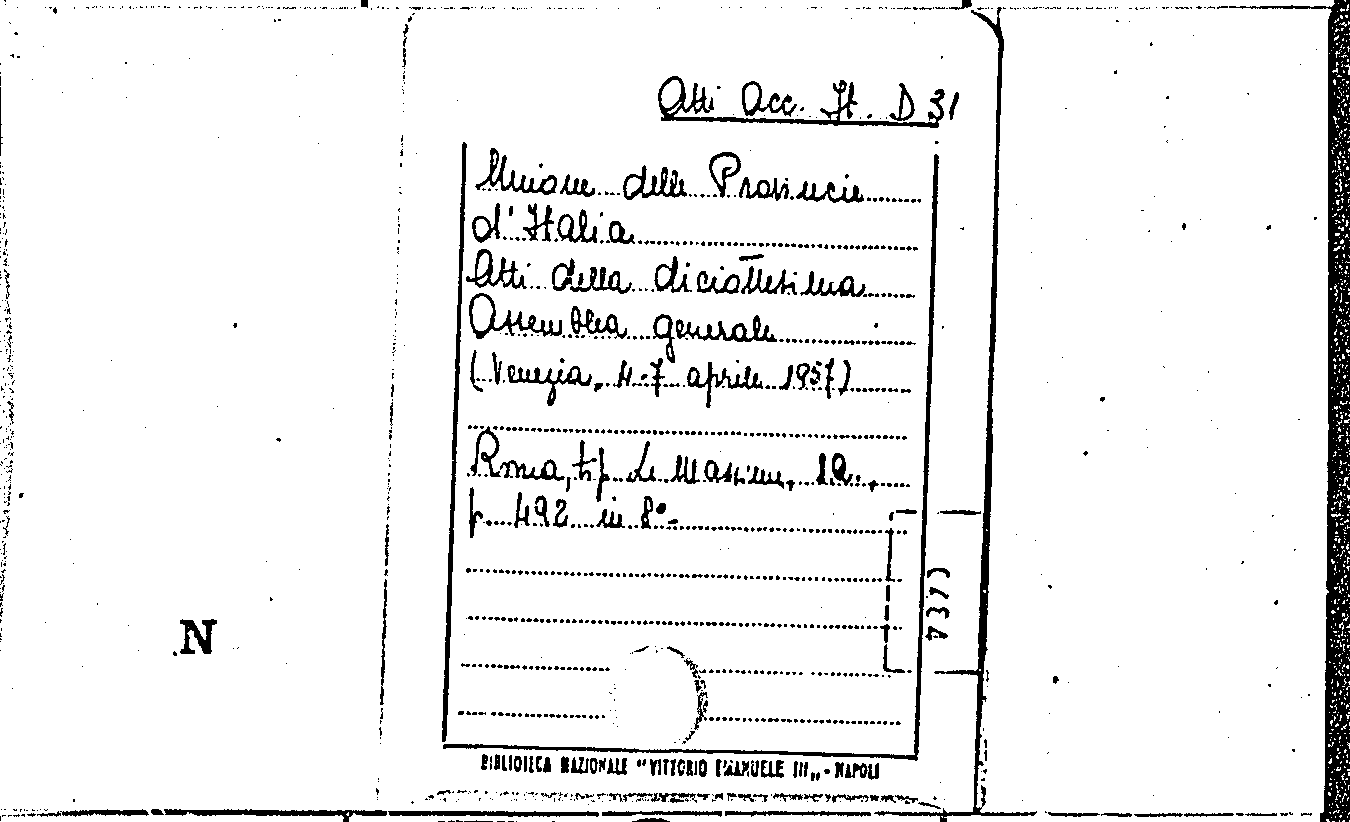 Atti Acc. It. D 31
Unione delle Provincie
d'Italia
Atti della diciottesima
Assemblea generale
(Venezia, 4-7 aprile 1957)
Roma, tip. Le Massime, s.a.,
p. 492 in 8°.
N
BIBLIOTECA NAZIONALE "VITTORIO EMANUELE III„ - NAPOLI